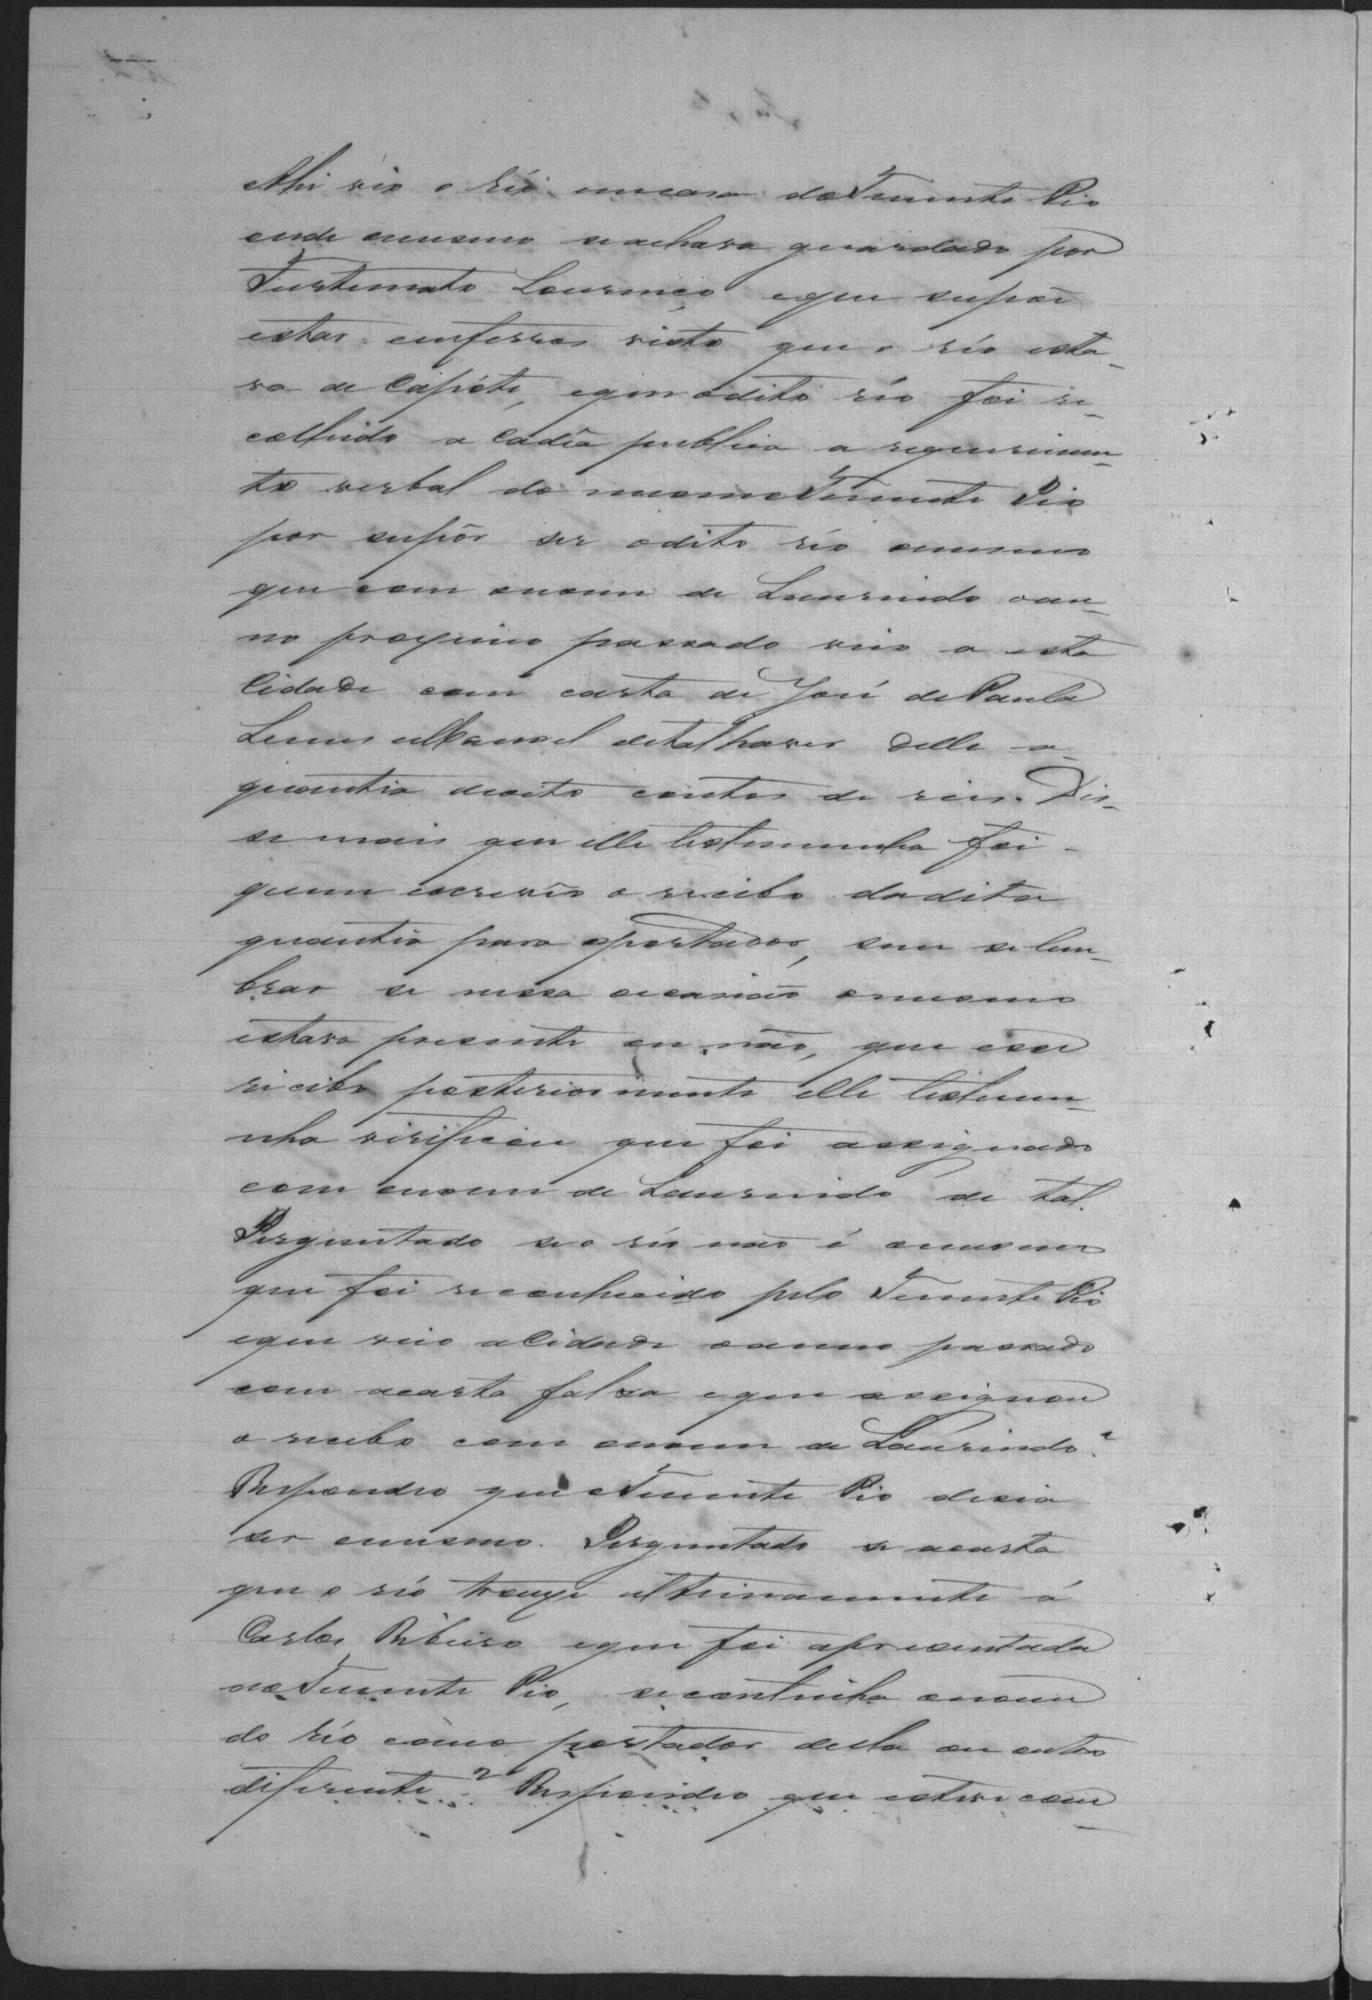 Ahi vio o réo em casa do Tenente Pio
onde o mesmo se achava guardado por
Furtunato Lourenço e que supõe
estar em ferros visto que o réo esta-
va de Capóte, e que o dito réo foi re-
colhido a Cadêa publica a requerimen-
to verbal do mesmo Tenente Pio
por supôr ser o dito réo o mesmo
que com o nome de Laurindo o an-
no proximo passado veio a esta
Cidade com carta de José de Paula
Lemes e Manoel de tal haver delle a
quantia de oito contos de reis. Dis-
se mais que elle testemunha foi
quem escreveo o recibo da dita
quantia para o portador, sem se lem-
brar se nessa occasião o mesmo
estava presente ou não, que esse
recibo posteriormente elle testemu-
nha verificou que foi assignado
com o nome de Laurindo de tal.
Perguntado se o réo não é o mesmo
que foi reconhecido pelo Tenente Pio
e que veio a Cidade o anno passado
com a carta falsa e que assignou
o recibo com o nome de Laurindo?
Respondeo que o Tenente Pio dizia
ser o mesmo. Perguntado se a carta
que o réo trouxe ultimamente á
Carlos Ribeiro e que foi apresentada
ao Tenente Pio, se continha o nome
do réo como portador della ou outro
diferente? Respondeo que esteve com